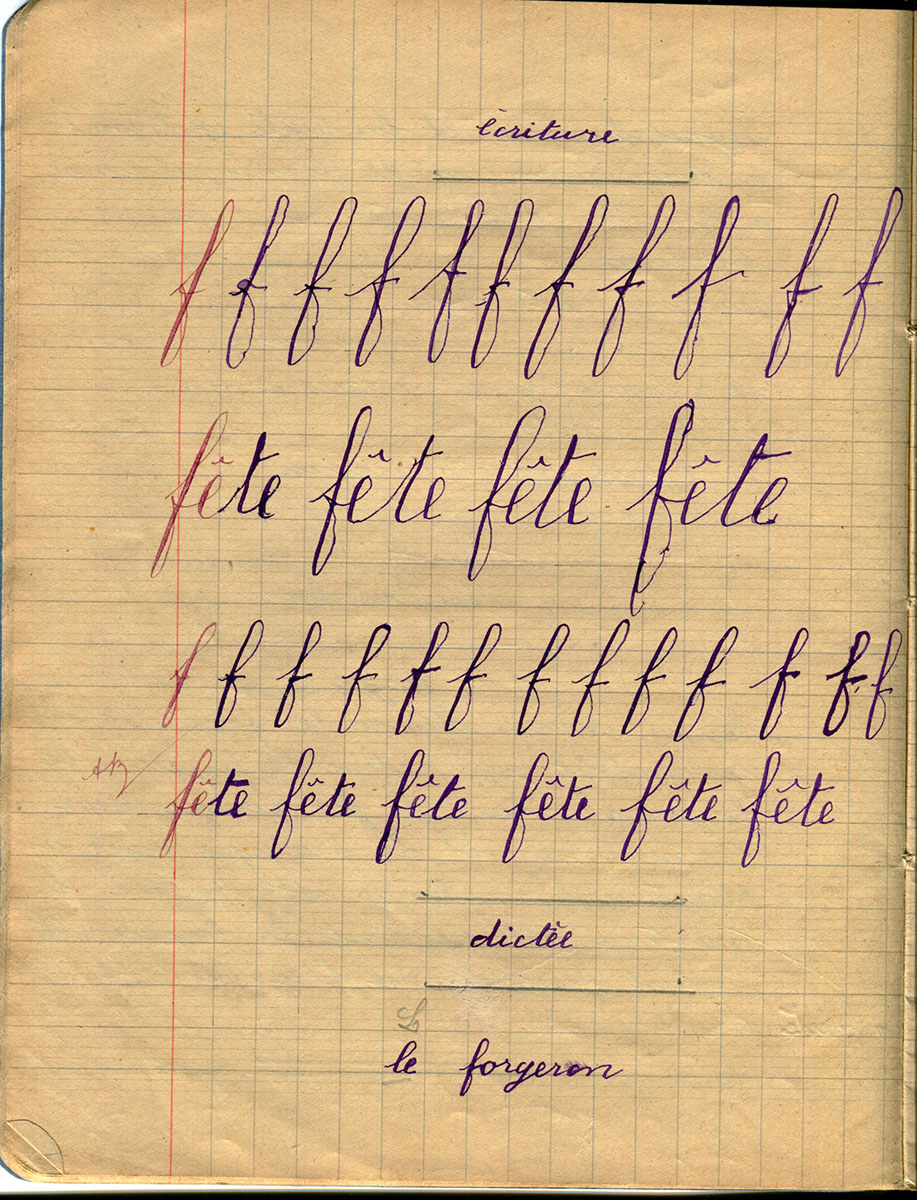 écriture
f f f f f f f f f f f
fête fête fête fête
f f f f f f f f f f f f f
fête fête fête fête fête fête
dictée
L
le forgeron